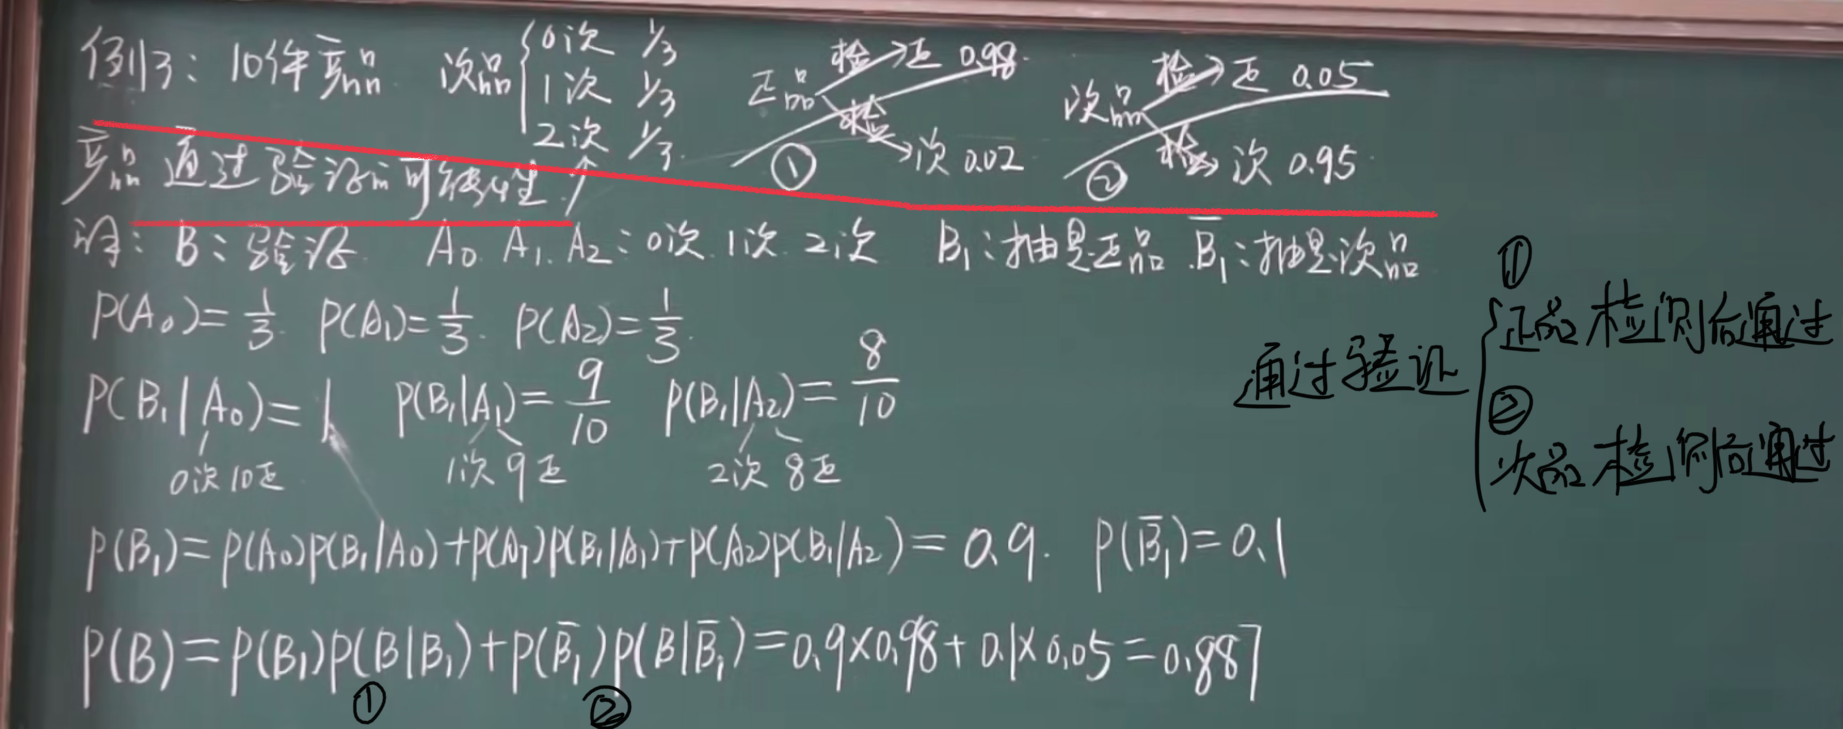 例3: 10件产品 次品 { 0次 1/3
1次 1/3
2次 1/3
正品 检→正 0.98
检→次 0.02
①
次品 检→正 0.05
检→次 0.95
②
产品通过验收的可能性
设: B: 验收 A₀ A₁ A₂: 0次 1次 2次 B₁: 抽是正品 B̅₁: 抽是次品
P(A₀)=1/3 P(A₁)=1/3 P(A₂)=1/3
P(B₁|A₀)=1 P(B₁|A₁)=9/10 P(B₁|A₂)=8/10
0次10正 1次9正 2次8正
P(B₁)=P(A₀)P(B₁|A₀)+P(A₁)P(B₁|A₁)+P(A₂)P(B₁|A₂)=0.9. P(B̅₁)=0.1
P(B)=P(B₁)P(B|B₁)+P(B̅₁)P(B|B̅₁)=0.9×0.98+0.1×0.05=0.887
① ②
通过验证 {
①
正品检测后通过
②
次品检测后通过